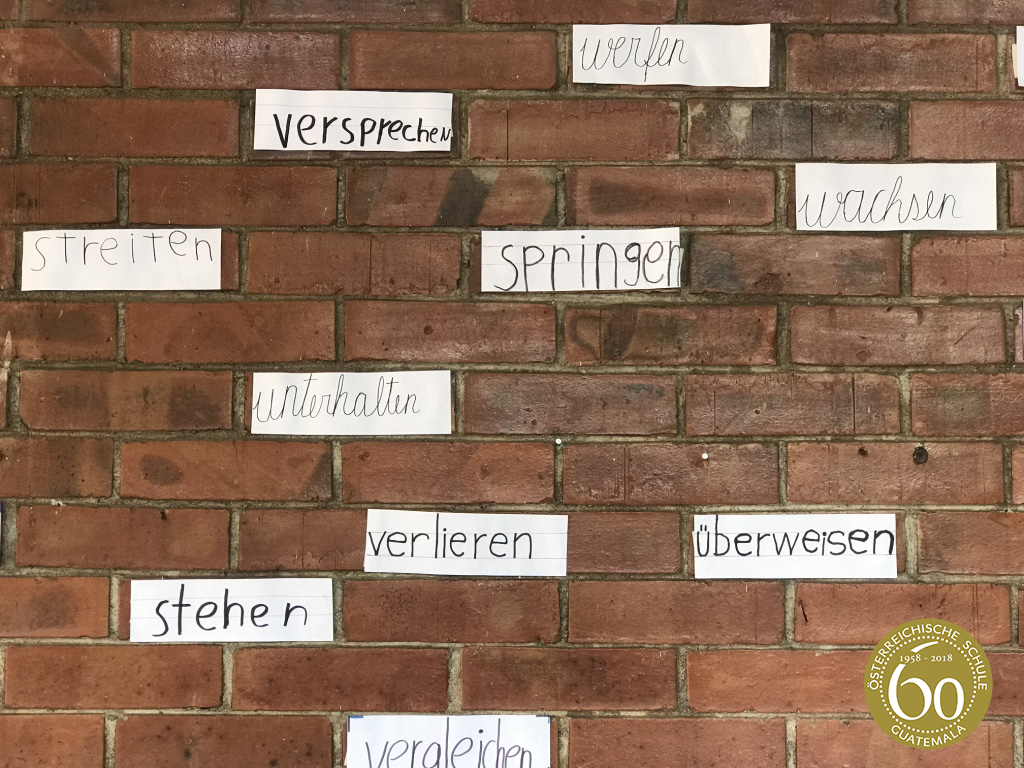 werfen
versprechen
wachsen
streiten
springen
unterhalten
verlieren
überweisen
stehen
ÖSTERREICHISCHE SCHULE
1958 - 2018
60
GUATEMALA
vergleichen